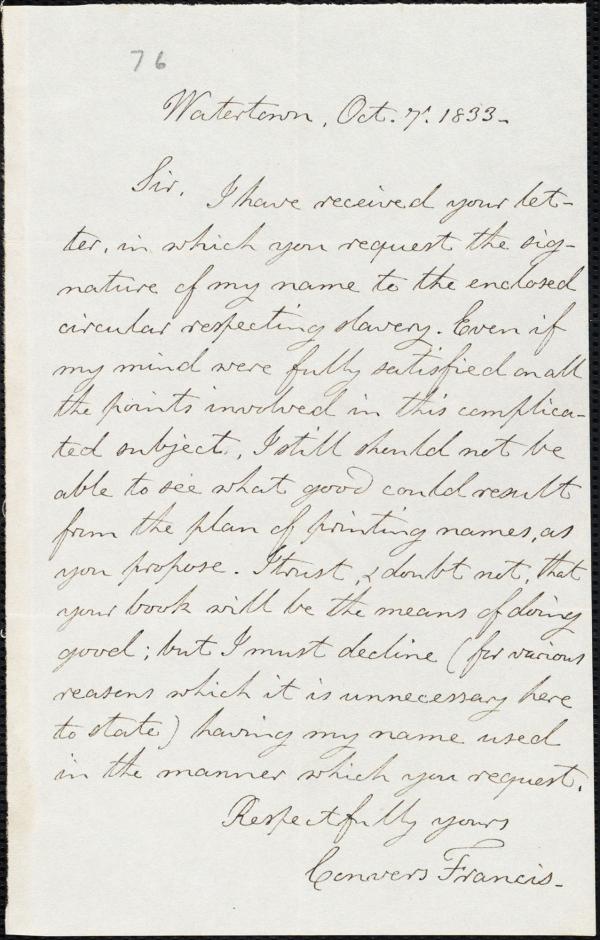 76
Watertown, Oct. 7. 1833.
Sir. I have received your let-
ter, in which you request the sig-
nature of my name to the enclosed
circular respecting slavery. Even if
my mind were fully satisfied on all
the points involved in this complica-
ted subject, I still should not be
able to see what good could result
from the plan of printing names, as
you propose. I trust, & doubt not, that
your book will be the means of doing
good; but I must decline (for various
reasons which it is unnecessary here
to state) having my name used
in the manner which you request.
Respectfully yours
Convers Francis.